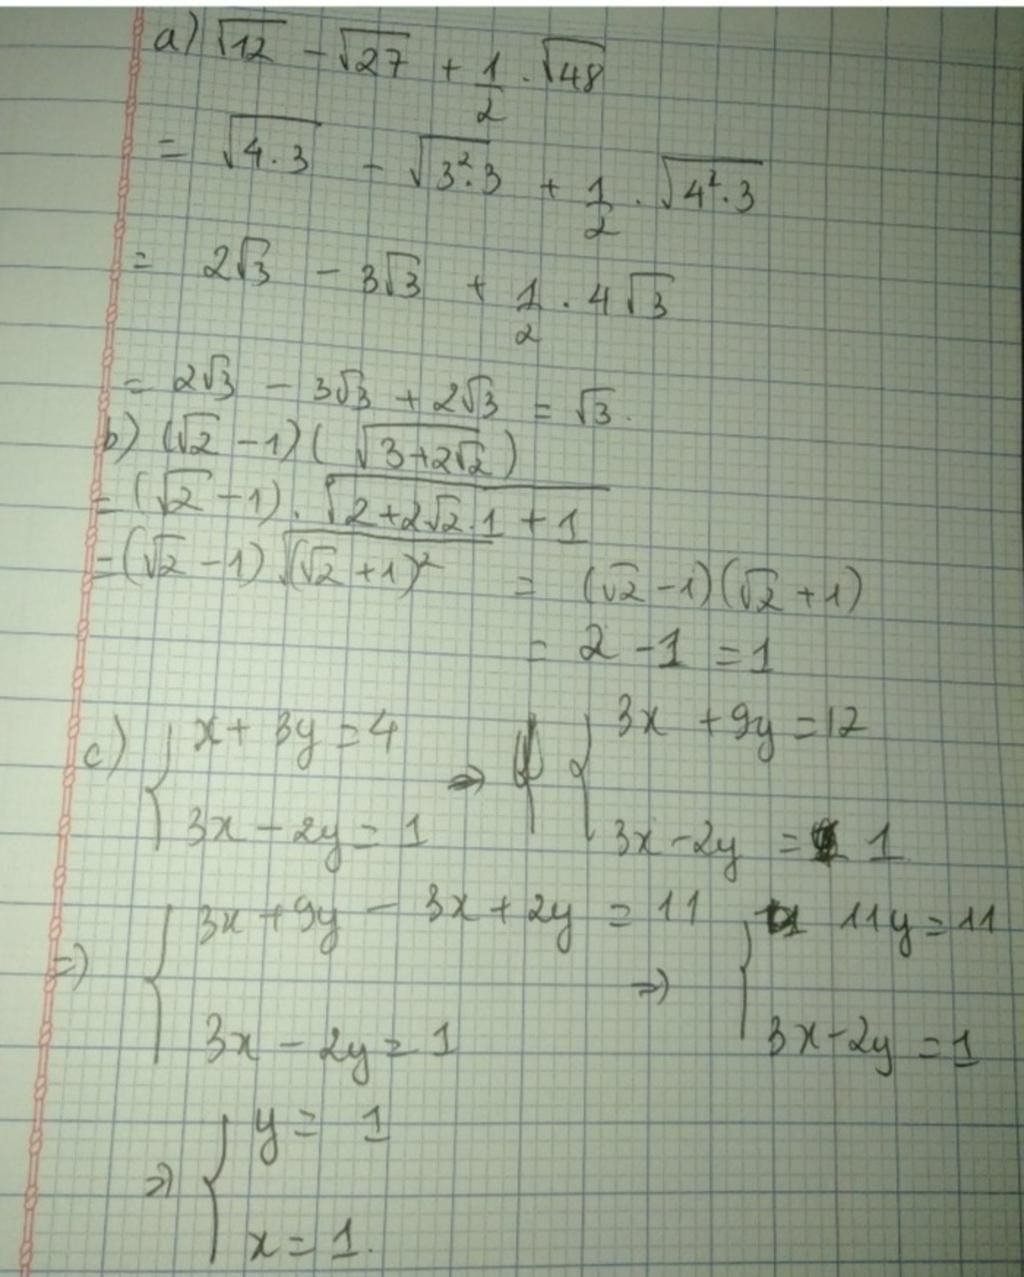 a) √12 - √27 + 1/2 . √48
= √4.3 - √3².3 + 1/2 . √4².3
= 2√3 - 3√3 + 1/2 . 4√3
= 2√3 - 3√3 + 2√3 = √3.
b) (√2 - 1) ( √3+2√2 )
= (√2 - 1) . √2+2√2.1 + 1
= (√2 - 1) √(√2 + 1)² = (√2 - 1)(√2 + 1)
= 2 - 1 = 1
c) { x + 3y = 4 => { 3x + 9y = 12
3x - 2y = 1 3x - 2y = 1
=> { 3x + 9y - 3x + 2y = 11 => { 11y = 11
3x - 2y = 1 3x - 2y = 1
=> { y = 1
x = 1.